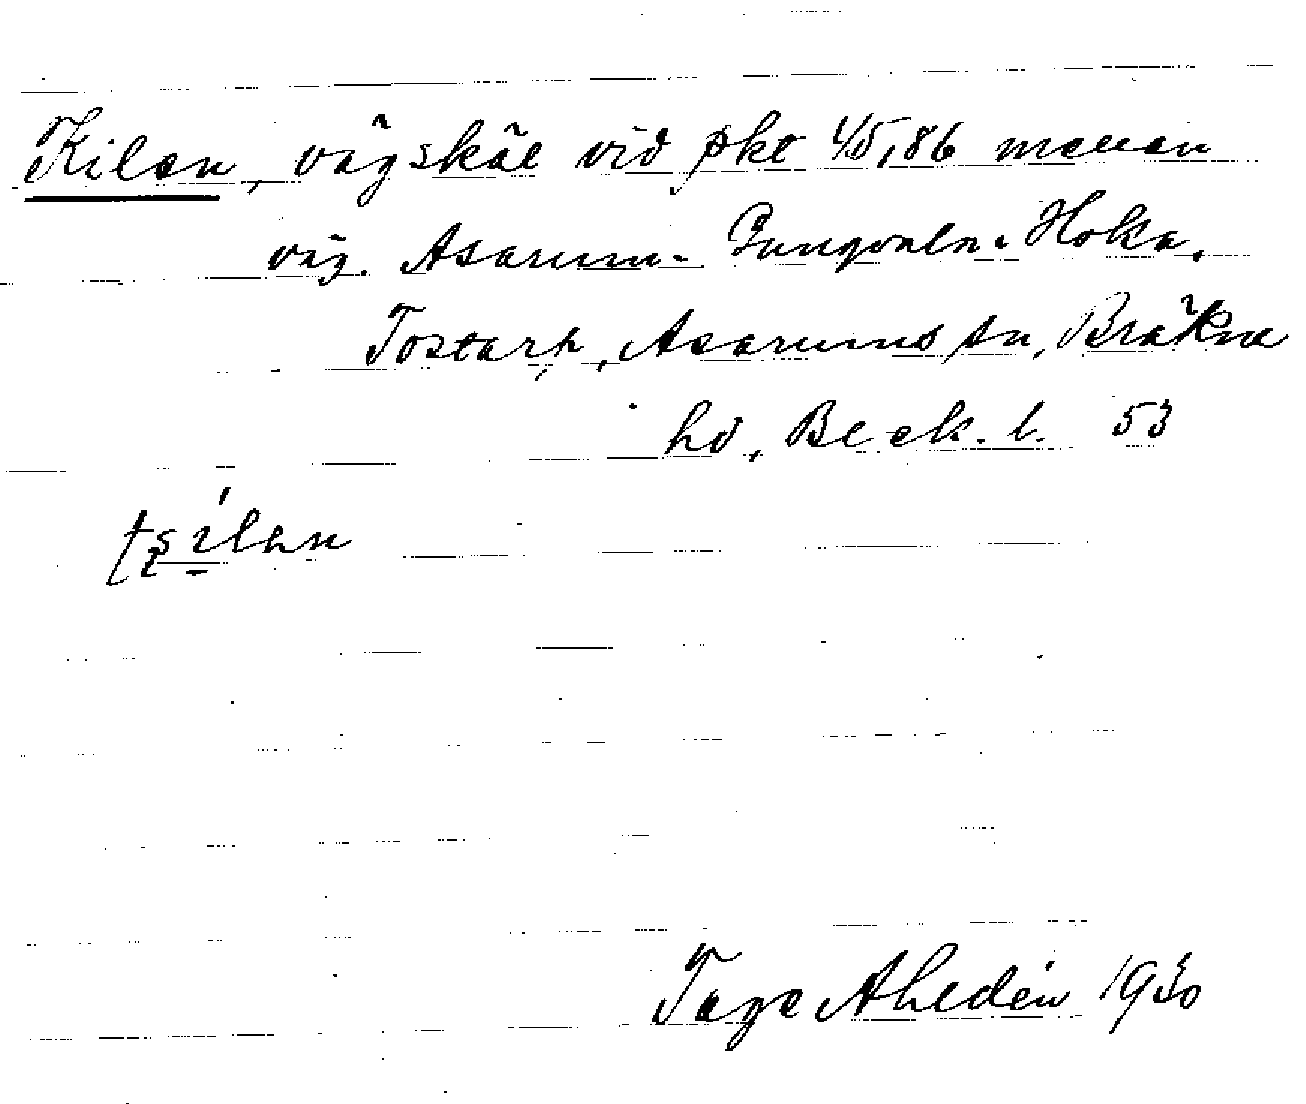 Kilen, vägskäl vid pkt 45,86 mellan
väg. Asarum - Gungvala - Hoka,
Tostarp, Asarums sn, Bräkne
hd, Bl ek. b. 53
Tage Ahldén 1930